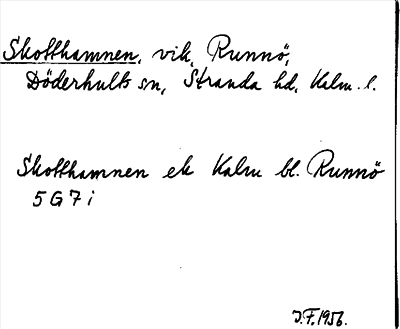 Skotthamnen, vik, Runnö,
Döderhults sn, Stranda hd, Kalm. l.
Skotthamnen ek Kalm bl. Runnö
5 G 7 i
J.F. 1956.